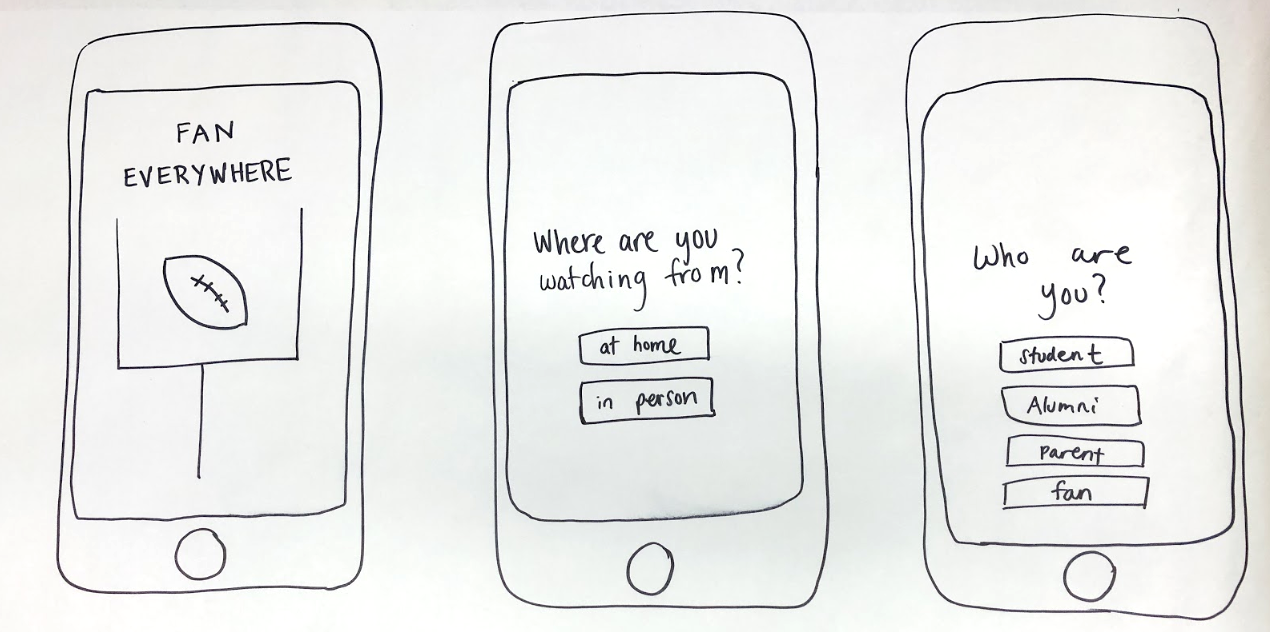 FAN
EVERYWHERE
Where are you
watching from?
at home
in person
Who are
you?
Student
Alumni
Parent
fan